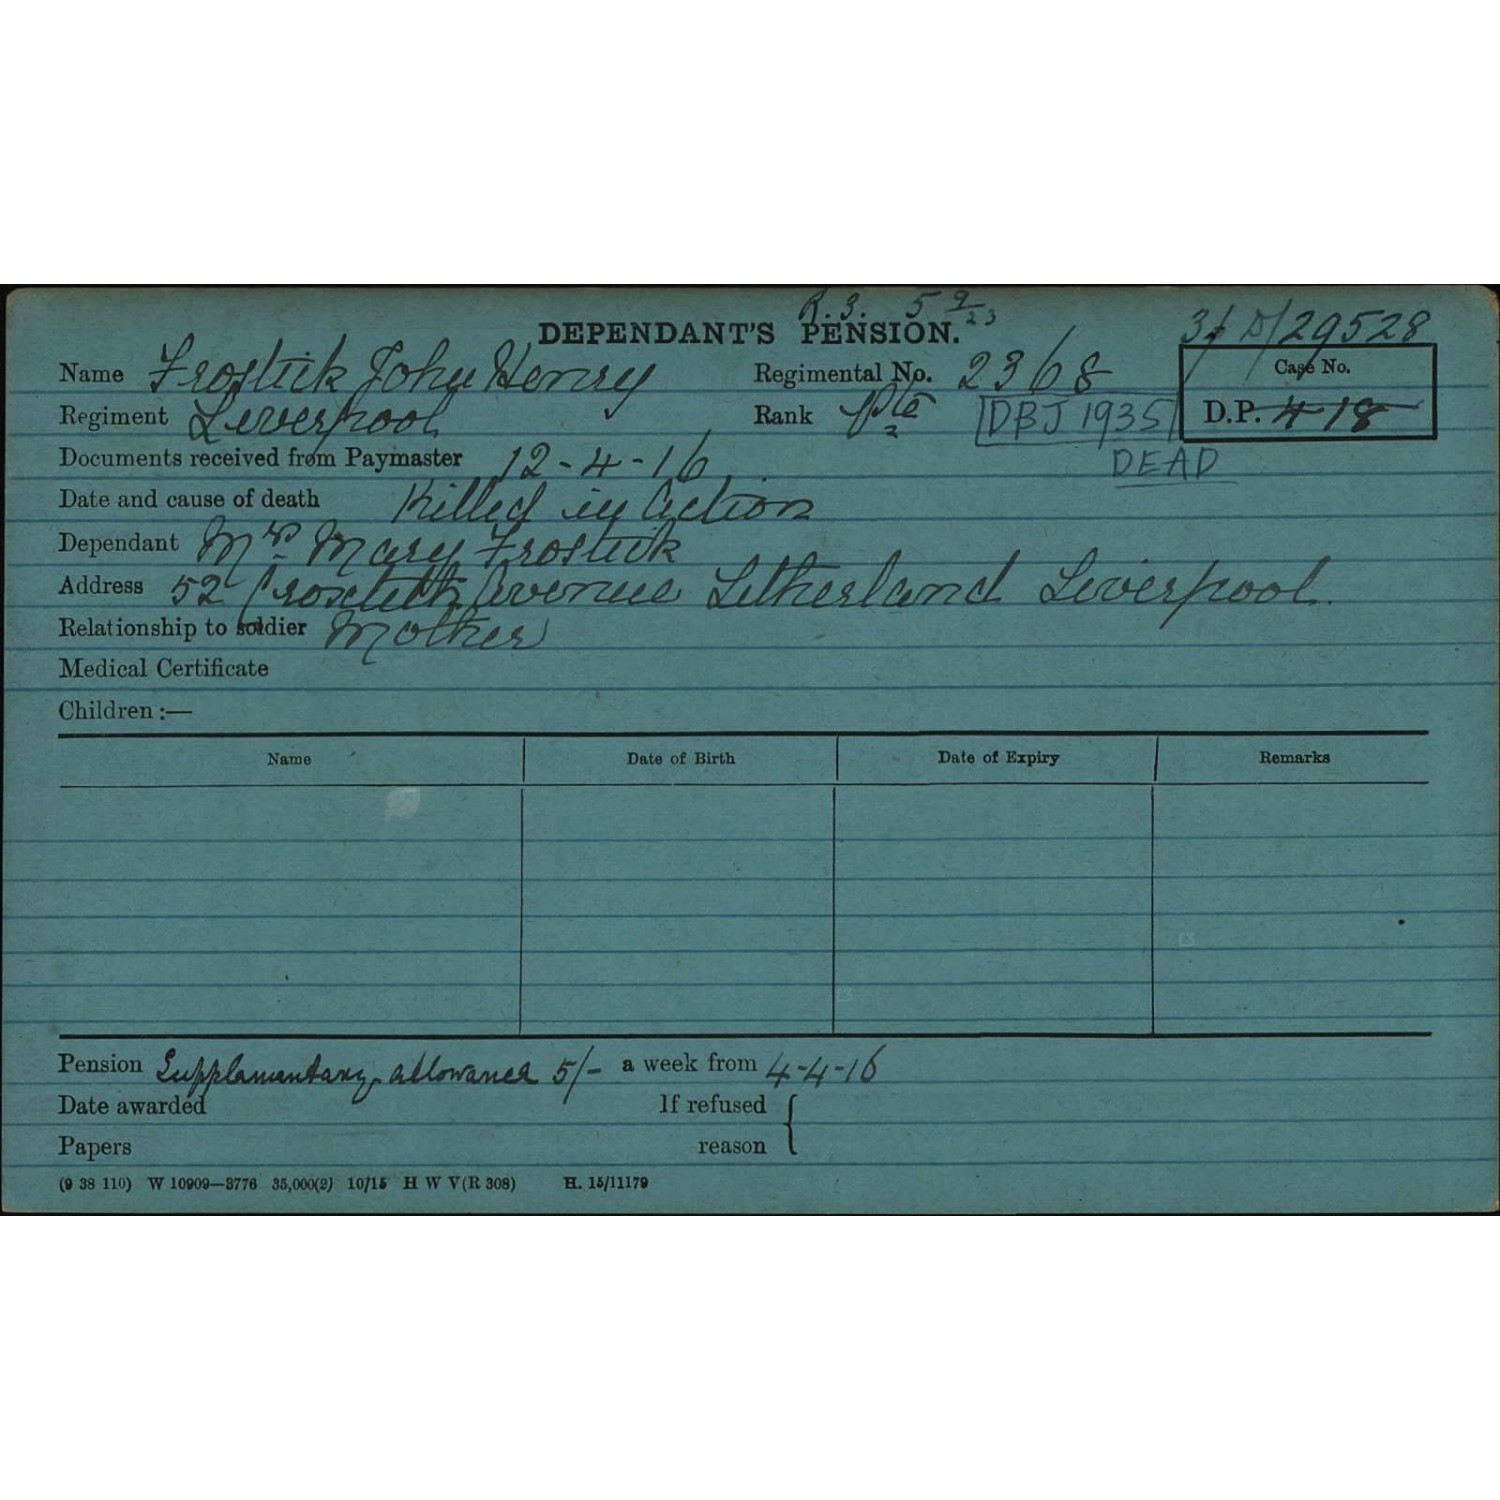 R.3. 5 9/23
DEPENDANT'S PENSION.
3/ D/29528
Name Frostick John Henry Regimental No. 2368 Case No.
Regiment Liverpool Rank Pte DBJ 1935 D.P. 418
Documents received from Paymaster 12-4-16 DEAD
Date and cause of death Killed in Action
Dependant Mrs Mary Frostick
Address 52 Croxteth Avenue Litherland Liverpool.
Relationship to soldier Mother
Medical Certificate
Children :—
Name Date of Birth Date of Expiry Remarks
Pension Supplamentary allowance 5/- a week from 4-4-16
Date awarded If refused
Papers reason
(9 38 110) W 10909—3776 35,000(2) 10/15 H W V(R 308) H. 15/11179